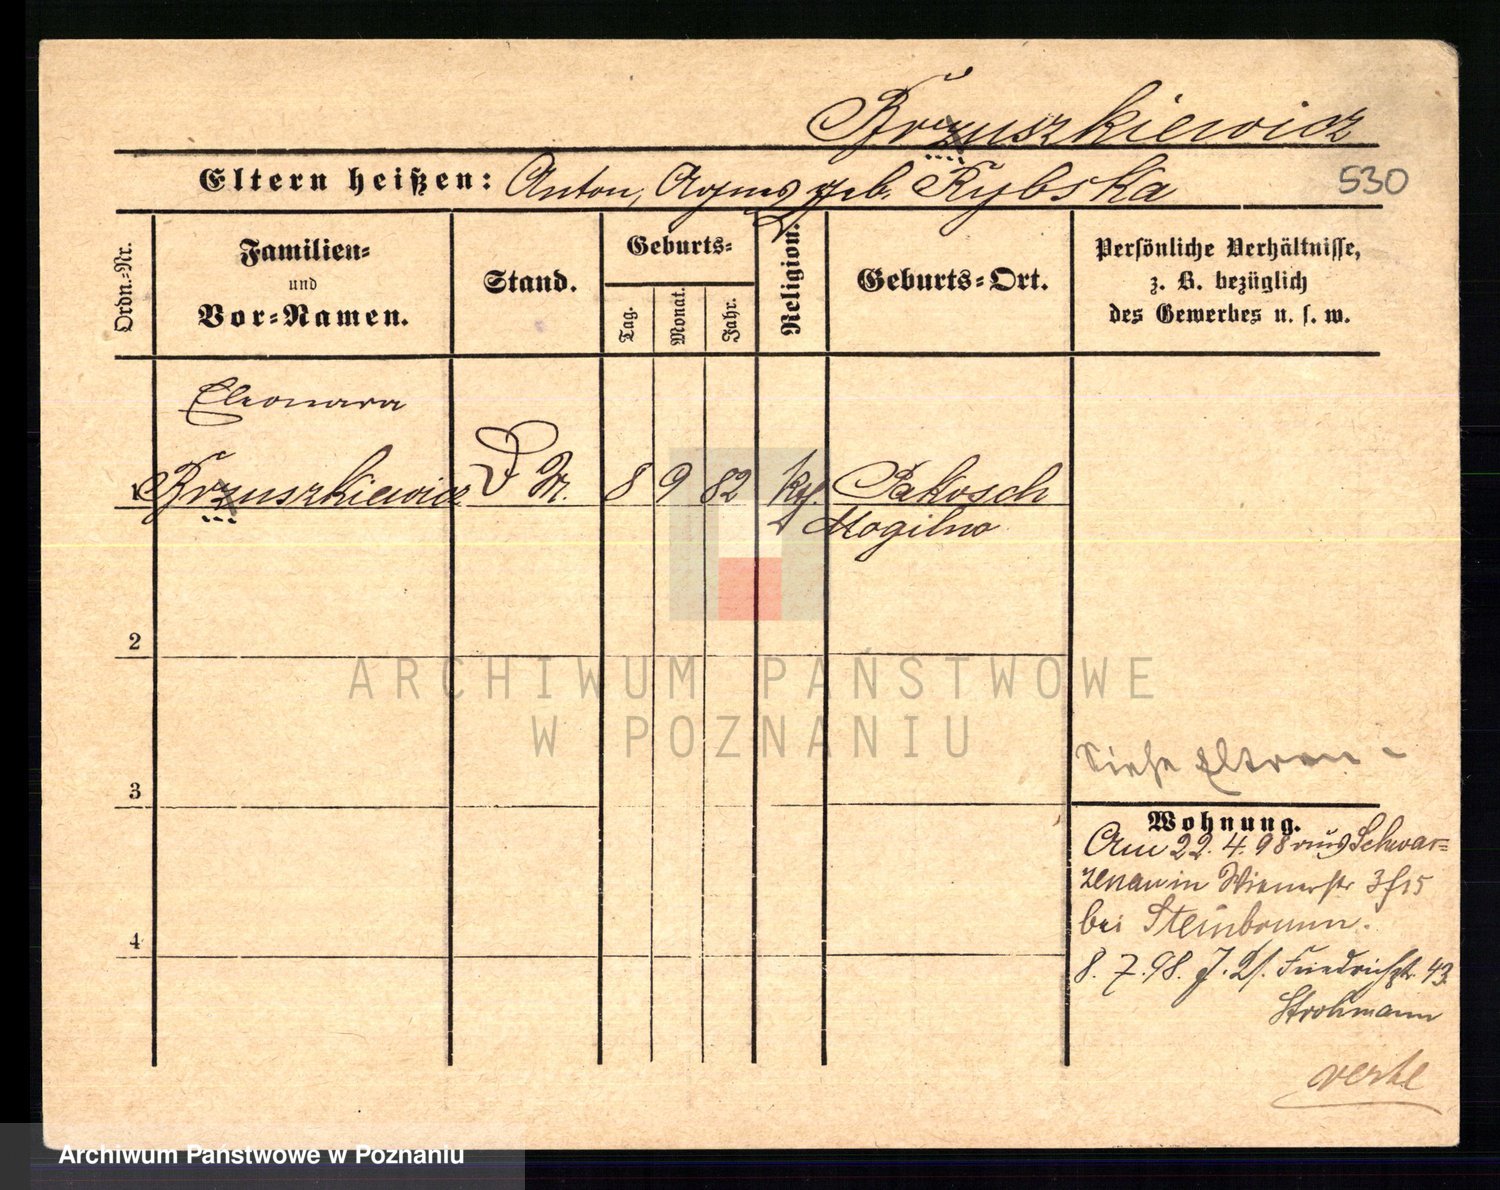 Brzuszkiewicz
Eltern heißen: Anton, Agnes geb. Rybska
530
Ordn.-Nr.
Familien-
und
Vor-Namen.
Stand.
Geburts-
Tag.
Monat.
Jahr.
Religion.
Geburts-Ort.
Persönliche Verhältnisse,
z. B. bezüglich
des Gewerbes u. s. w.
Eleonara
1 Brzuszkiewicz D M. 8 9 82 kth. Pakosch
Mogilno
2
3
4
ARCHIWUM PAŃSTWOWE
W POZNANIU
Siehe Eltern -
Wohnung.
Am 22. 4. 98 aus Schwar=
zenau in Wienerstr 3 f 15
bei Steinbrunn.
8. 7. 98. J. 21. Friedrichstr. 43
Strohmann
verte
Archiwum Państwowe w Poznaniu